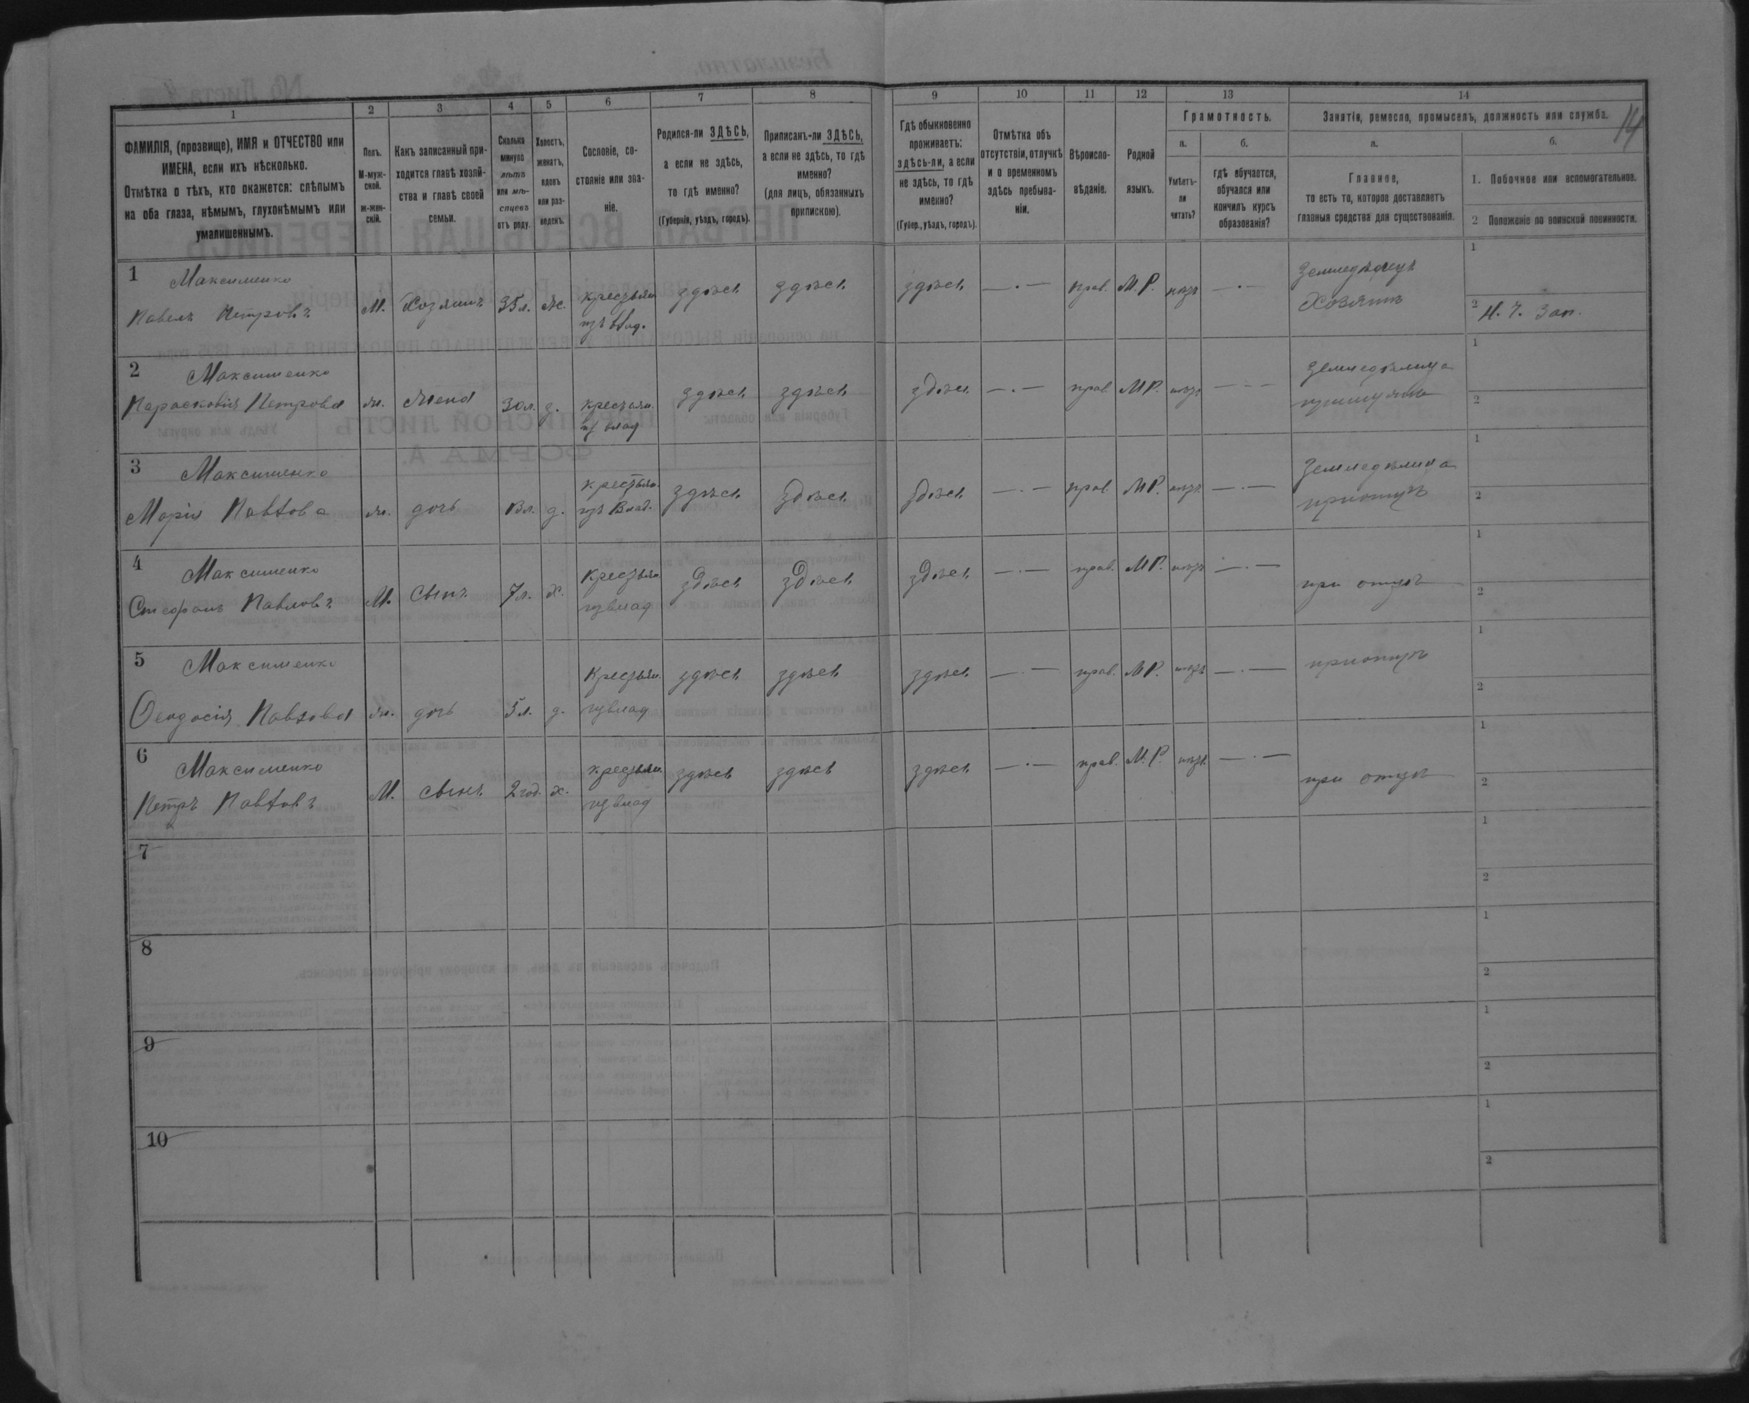 14
1 2 3 4 5 6 7 8 9 10 11 12 13 14
ФАМИЛІЯ, (прозвище), ИМЯ и ОТЧЕСТВО или
ИМЕНА, если ихъ нѣсколько.
Отмѣтка о тѣхъ, кто окажется: слѣпымъ
на оба глаза, нѣмымъ, глухонѣмымъ или
умалишеннымъ.
Полъ.
М-муж-
ской.
ж-жен-
скій.
Какъ записанный при-
ходится главѣ хозяй-
ства и главѣ своей
семьи.
Сколько
минуло
лѣтъ
или мѣ-
сяцевъ
отъ роду.
Холостъ,
женатъ,
вдовъ
или раз-
веденъ.
Сословіе, со-
стояніе или зва-
ніе.
Родился-ли ЗДѢСЬ,
а если не здѣсь,
то гдѣ именно?
(Губернія, уѣздъ, городъ).
Приписанъ-ли ЗДѢСЬ,
а если не здѣсь, то гдѣ
именно?
(для лицъ, обязанныхъ
припискою).
Гдѣ обыкновенно
проживаетъ:
здѣсь-ли, а если
не здѣсь, то гдѣ
именно?
(Губер., уѣздъ, городъ).
Отмѣтка объ
отсутствіи, отлучкѣ
и о временномъ
здѣсь пребыва-
ніи.
Вѣроиспо-
вѣданіе.
Родной
языкъ.
Грамотность.
а.
Умѣетъ-
ли
читать?
б.
гдѣ обучается,
обучался или
кончилъ курсъ
образованія?
Занятіе, ремесло, промыселъ, должность или служба.
а.
Главное,
то есть то, которое доставляетъ
главныя средства для существованія.
б.
1. Побочное или вспомогательное.
2 Положеніе по воинской повинности.
1 Максименко
Павелъ Петровъ М. Хозяинъ 35 л. ж. крестьян. изъ влад. здѣсь здѣсь здѣсь —·— прав. М.Р. нѣтъ —·— Земледѣлецъ
Хозяинъ
1
2
2 Максименко
Параскевія Петрова ж. жена 30 л. з. крестьян. изъ влад здѣсь здѣсь здѣсь —·— прав. МР. нѣтъ —·— Земледѣлица
1
2
3 Максименко
Марія Павлова ж. дочь д. крестьян. изъ Влад. здѣсь здѣсь здѣсь —·— прав. МР. нѣтъ —·— Земледѣлица
при отцѣ
1
2
4 Максименко
Стефанъ Павловъ М. Сынъ 7 л. х. Крестьян изъ влад здѣсь здѣсь здѣсь —·— прав. МР. нѣтъ —·— при отцѣ
1
2
5 Максименко
Ѳеодосія Павлова ж. дочь 5 л. д. Крестьян. изъ влад здѣсь здѣсь здѣсь —·— прав. МР. нѣтъ —·— при отцѣ
1
2
6 Максименко
Петръ Павловъ М. сынъ 2 год. х. крестьян. изъ влад здѣсь здѣсь здѣсь —·— прав. М.Р. нѣтъ —·— при отцѣ
1
2
7
1
2
8
1
2
9
1
2
10
1
2